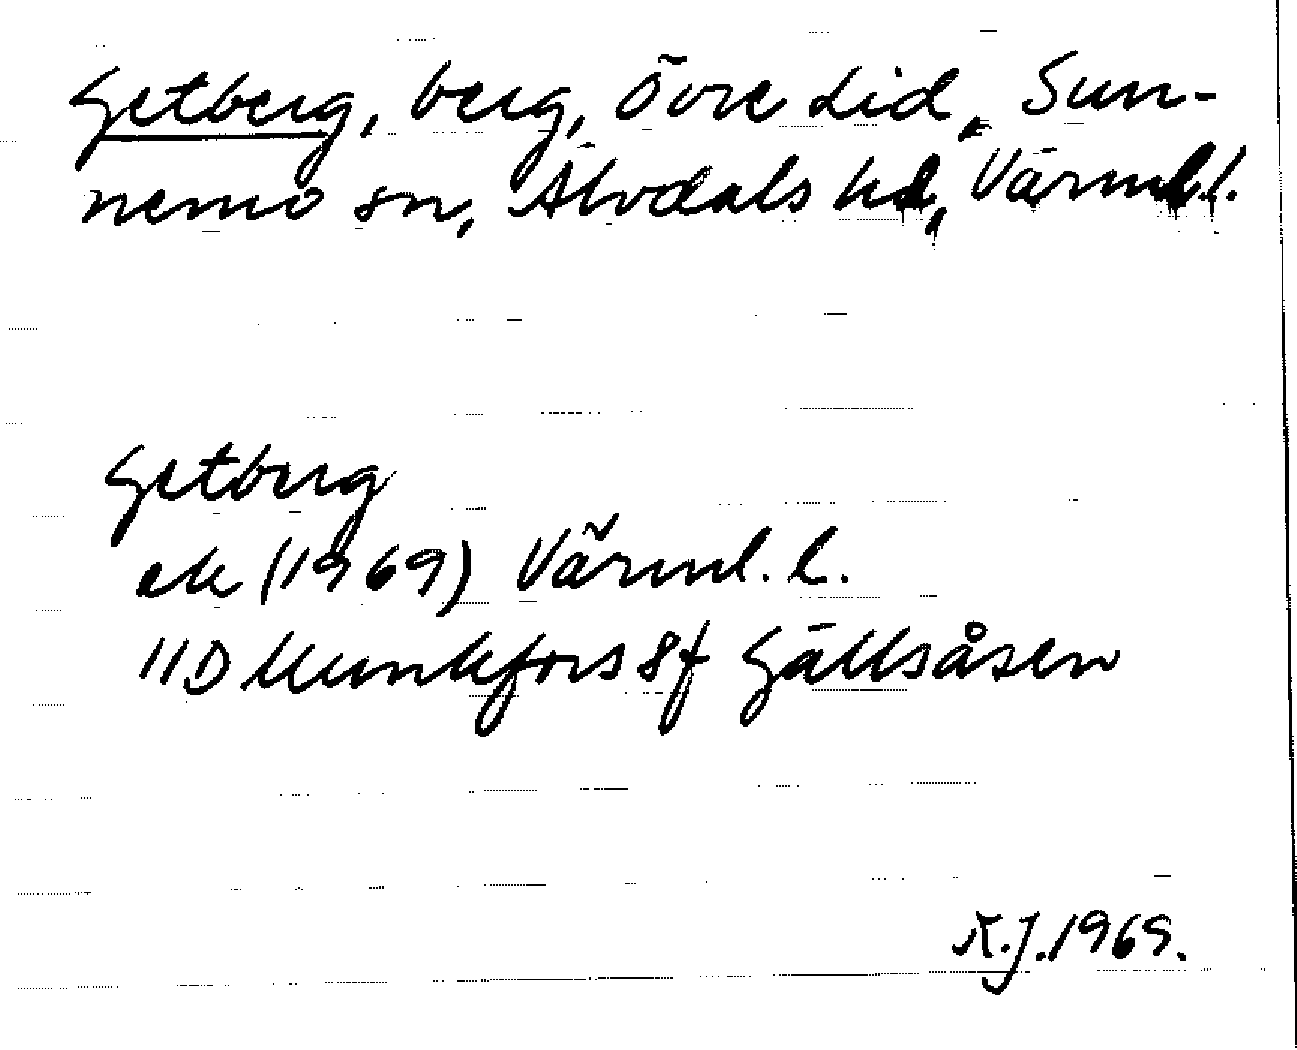 Getberg, berg, Övre Lid, Sun-
nemo sn, Älvdals hd, Värml.l.
Getberg
ek (1969) Värml. l.
11D Munkfors 8f Gällsåsen
R.J. 1969.